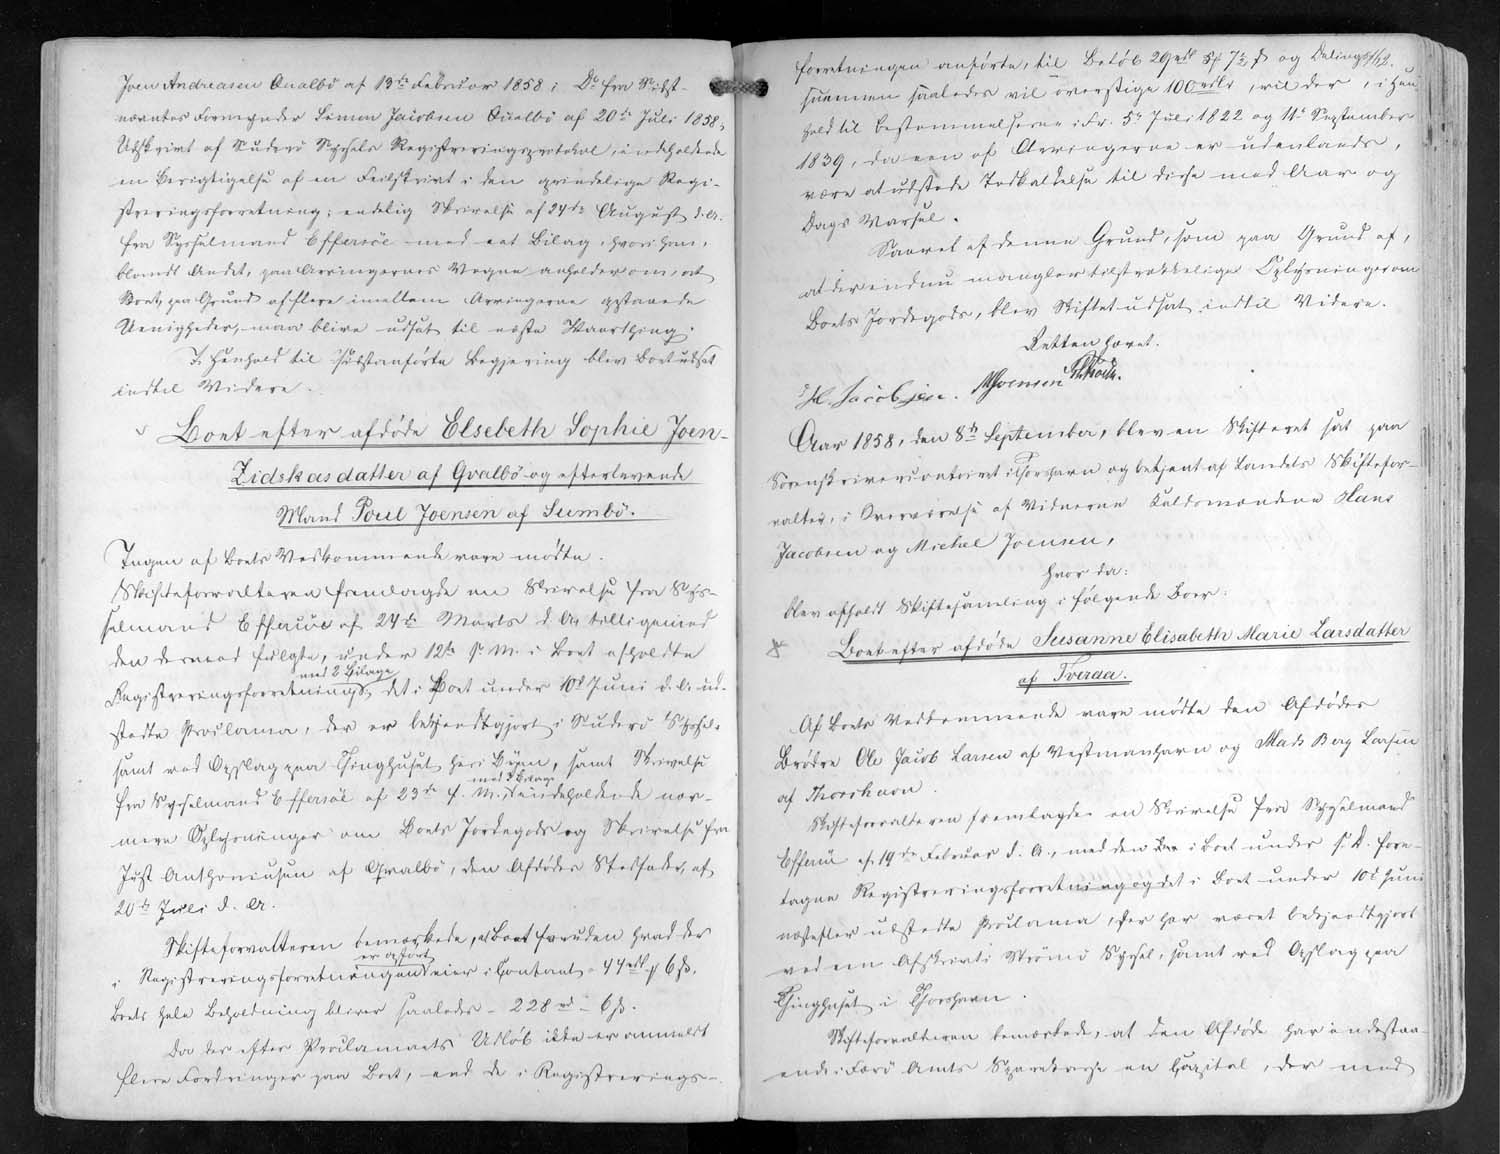 Joen Andreasen Qvalbö af 13de Februar 1858; Do fra Sidst-
nævntes Formynder Simon Jacobsen Qvalbö af 20de Juli 1858;
Udskrivt af Suderö Syssels Registreringsprotokol, indeholdende
en Berigtigelse af en Feilskrivt i den grindelige Regi-
streringsforretning; endelig Skrivelse af 24de August d. A.
fra Sysselmand Effersöe med eet Bilag, hvori han,
blandt Andet, paa Arvingernes Vegne anholder om, at
Boet, paa Grund af flere imellem Arvingerne opstaaede
Uenigheder, maa blive udsat til næste Vaarthing.
I Henhold til sidstanförte Begjering blev Boet udsat
indtil Videre.
Boet efter afdöde Elsebeth Sophie Joen-
Zidskasdatter af Qvalbö og efterlevende
Mand Poul Joensen af Sumbö.
Ingen af Boets Vedkommende vare mödte.
Skifteforvalteren fremlagde en Skrivelse fra Sys-
selmand Effersöe af 24de Marts d. A. tilligemed
den dermed fulgte, under 12te s. M. i Boet afholdte
med 2 Bilage
Registreringsforretning, det i Boet under 10de Juni d. A. ud-
stedte Proclama, der er bekjendtgjort i Suderö Syssel
samt ved Opslag paa Thinghuset her i Byen, samt Skrivelse
med 3 Bilage
fra Sysselmand Effersöe af 23de f. M., indeholdende nær-
mere Oplysninger om Boets Jordegods og Skrivelse fra
Just Anthoniusen af Qvalbö, den Afdödes Stedfader, af
20de Juli d. A.
Skifteforvalteren bemærkede, at Boet foruden hvad der
er opfört
i Registreringsforretningen eier i Contant 44 rd. 6 ß.
Boets hele Beholdning bliver saaledes 228 rd 6 ß.
Da der efter Proclamaets Udlöb ikke er anmeldt
flere Fordringer paa Boet, end de i Registrerings-
forretningen anförte, til Belöb 29 rdl 5 ß og Delings- 112.
summen saaledes vil overstige 100 rdlr, vil der, i Hen-
hold til Bestemmelserne i Fr. 5te Juli 1822 og 11te September
1839, da een af Arvingerne er udenlands,
være at udstede Indkaldelse til disse med Aar og
Dags Varsel.
Saavel af denne Grund, som paa Grund af,
at der endnu mangler tilstrækkelige Oplysninger om
Boets Jordegods, blev Skiftet udsat indtil Videre.
Retten hævet.
H. Jacobsen. MJoensen
Aar 1858, den 8de September, blev en Skifteret sat paa
Sorenskrivercontoiret i Thorshavn og betjent af Landets Skiftefor-
valter, i Overværelse af Vidnerne Kaldsmændene Hans
Jacobsen og Michel Joensen,
hvor da:
blev afholdt Skiftesamling i fölgende Boer:
Boet efter afdöde Susanne Elisabeth Marie Larsdatter
af Tveraa.
Af Boets Vedkommende vare mödte den Afdödes
Brödre Ole Jacob Larsen af Vestmanhavn og Mads Berg Larsen
af Thorshavn.
Skifteforvalteren fremlagde en Skrivelse fra Sysselmand
Effersöe af 19de Februar d. A., med den i Boet under s. D. fore-
tagne Registreringsforretning og det i Boet under 10de Juni
næstefter udstedte Proclama, der har været bekjendtgjort
ved en Afskrivt i Strömö Syssel, samt ved Opslag paa
Thinghuset i Thorshavn.
Skifteforvalteren bemærkede, at den Afdöde har indestaa-
ende i Færö Amts Sparekasse en Capital, der med